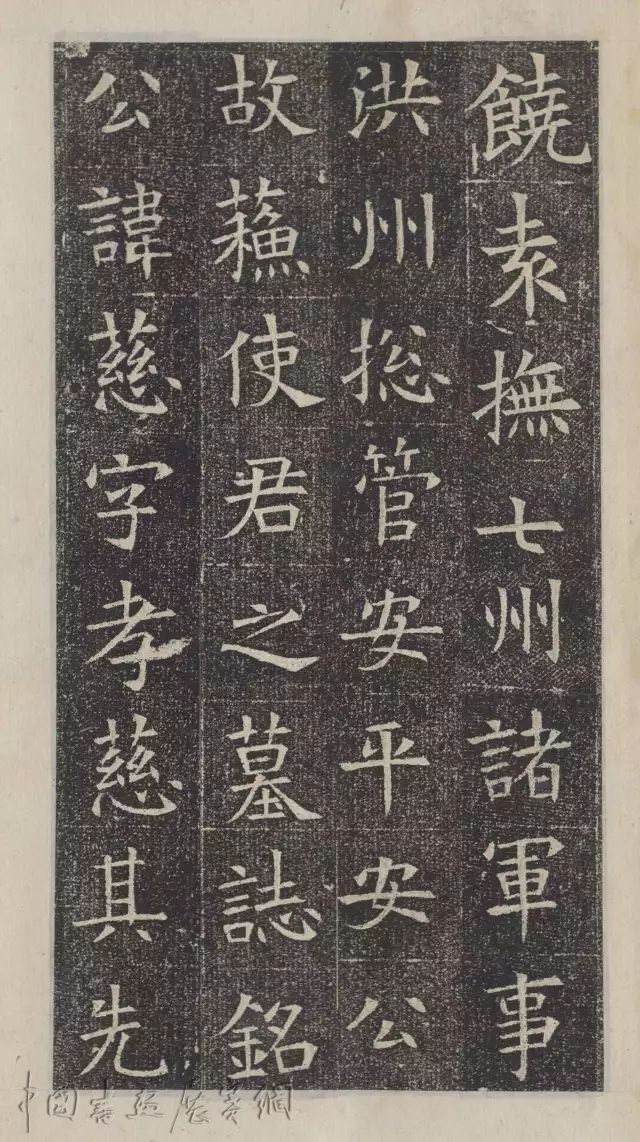 饒袁撫七州諸軍事
洪州捴管安平安公
故蘓使君之墓誌銘
公諱慈字孝慈其先
中国书法展赛网